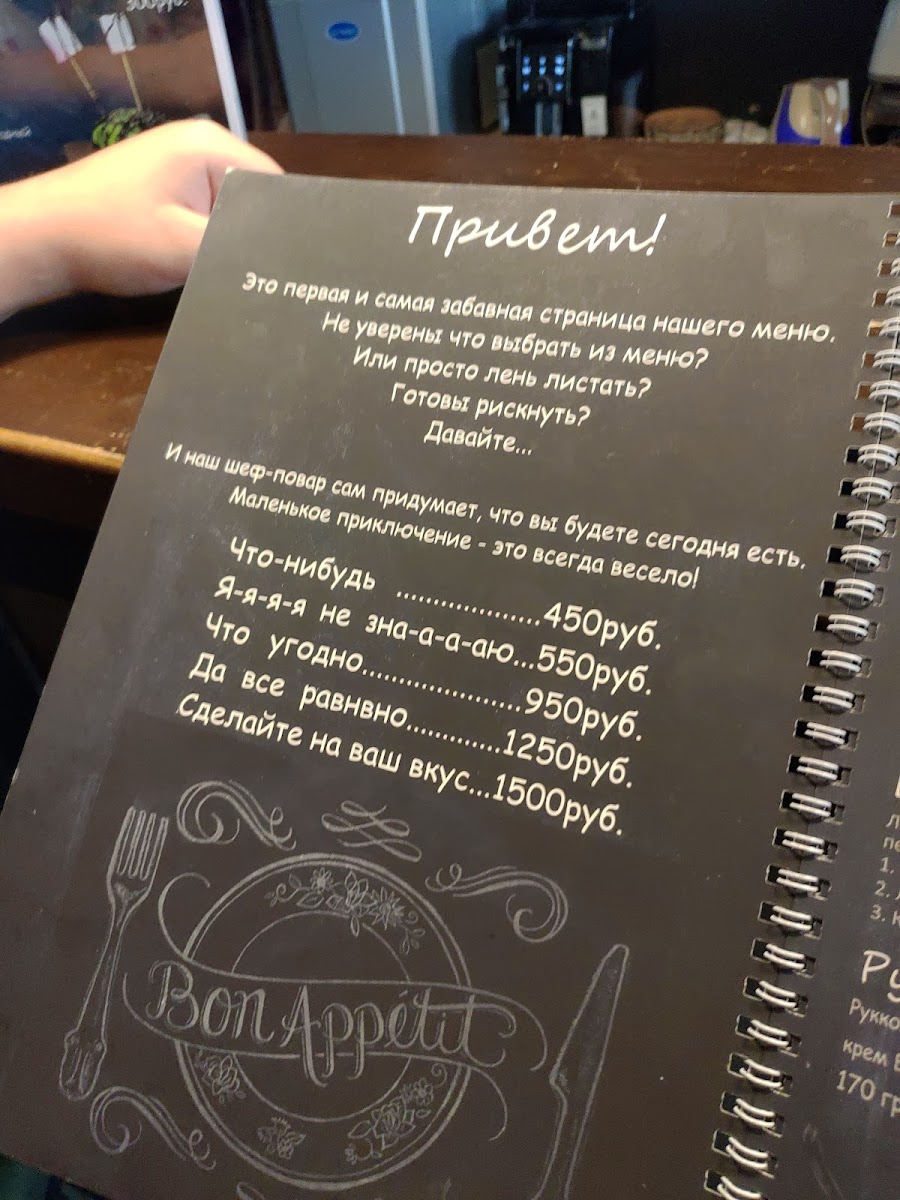 300руб.
Привет!
Это первая и самая забавная страница нашего меню.
Не уверены что выбрать из меню?
Или просто лень листать?
Готовы рискнуть?
Давайте...
И наш шеф-повар сам придумает, что вы будете сегодня есть.
Маленькое приключение - это всегда весело!
Что-нибудь ..................450руб.
Я-я-я-я не зна-а-а-аю...550руб.
Что угодно....................950руб.
Да все равнвно............1250руб.
Сделайте на ваш вкус...1500руб.
Bon Appétit
1.
2.
3.
170 гр